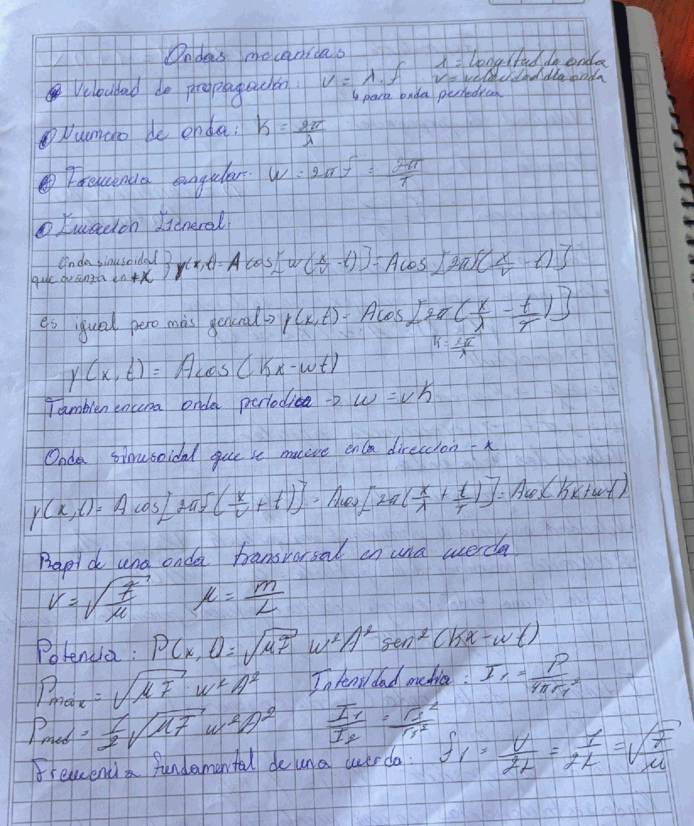 Ondas mecanicas
Velocidad de propagación: v = λ.f    λ = longitud de onda
↳ para onda periodica    v = velocidad de la onda
Numero de onda: K = 2π/λ
Frecuencia angular: w = 2πf = 2π/T
Ecuación General:
Onda sinusoidal que avanza en +x } y(x,t) = A cos[w(x/v - t)] = A cos[2πf(x/v - t)]
es igual pero más general → y(x,t) = A cos[2π(x/λ - t/T)]
K = 2π/λ
y(x,t) = A cos(Kx - wt)
Tambien en una onda periodica → w = vK
Onda sinusoidal que se mueve en la dirección -x
y(x,t) = A cos[2πf(x/v + t)] = A cos[2π(x/λ + t/T)] = A cos(Kx + wt)
Rapi de una onda transversal en una cuerda
v = √(F/μ)    μ = m/L
Potencia: P(x,t) = √μF w²A² sen²(Kx - wt)
Pmax = √μF w²A²    Intensidad media: I₁ = P/4πr₁²
Pmed = 1/2 √μF w²A²    I₁/I₂ = r₂²/r₁²
Frecuencia fundamental de una cuerda: f₁ = v/2L = 1/2L = √(F/μ)